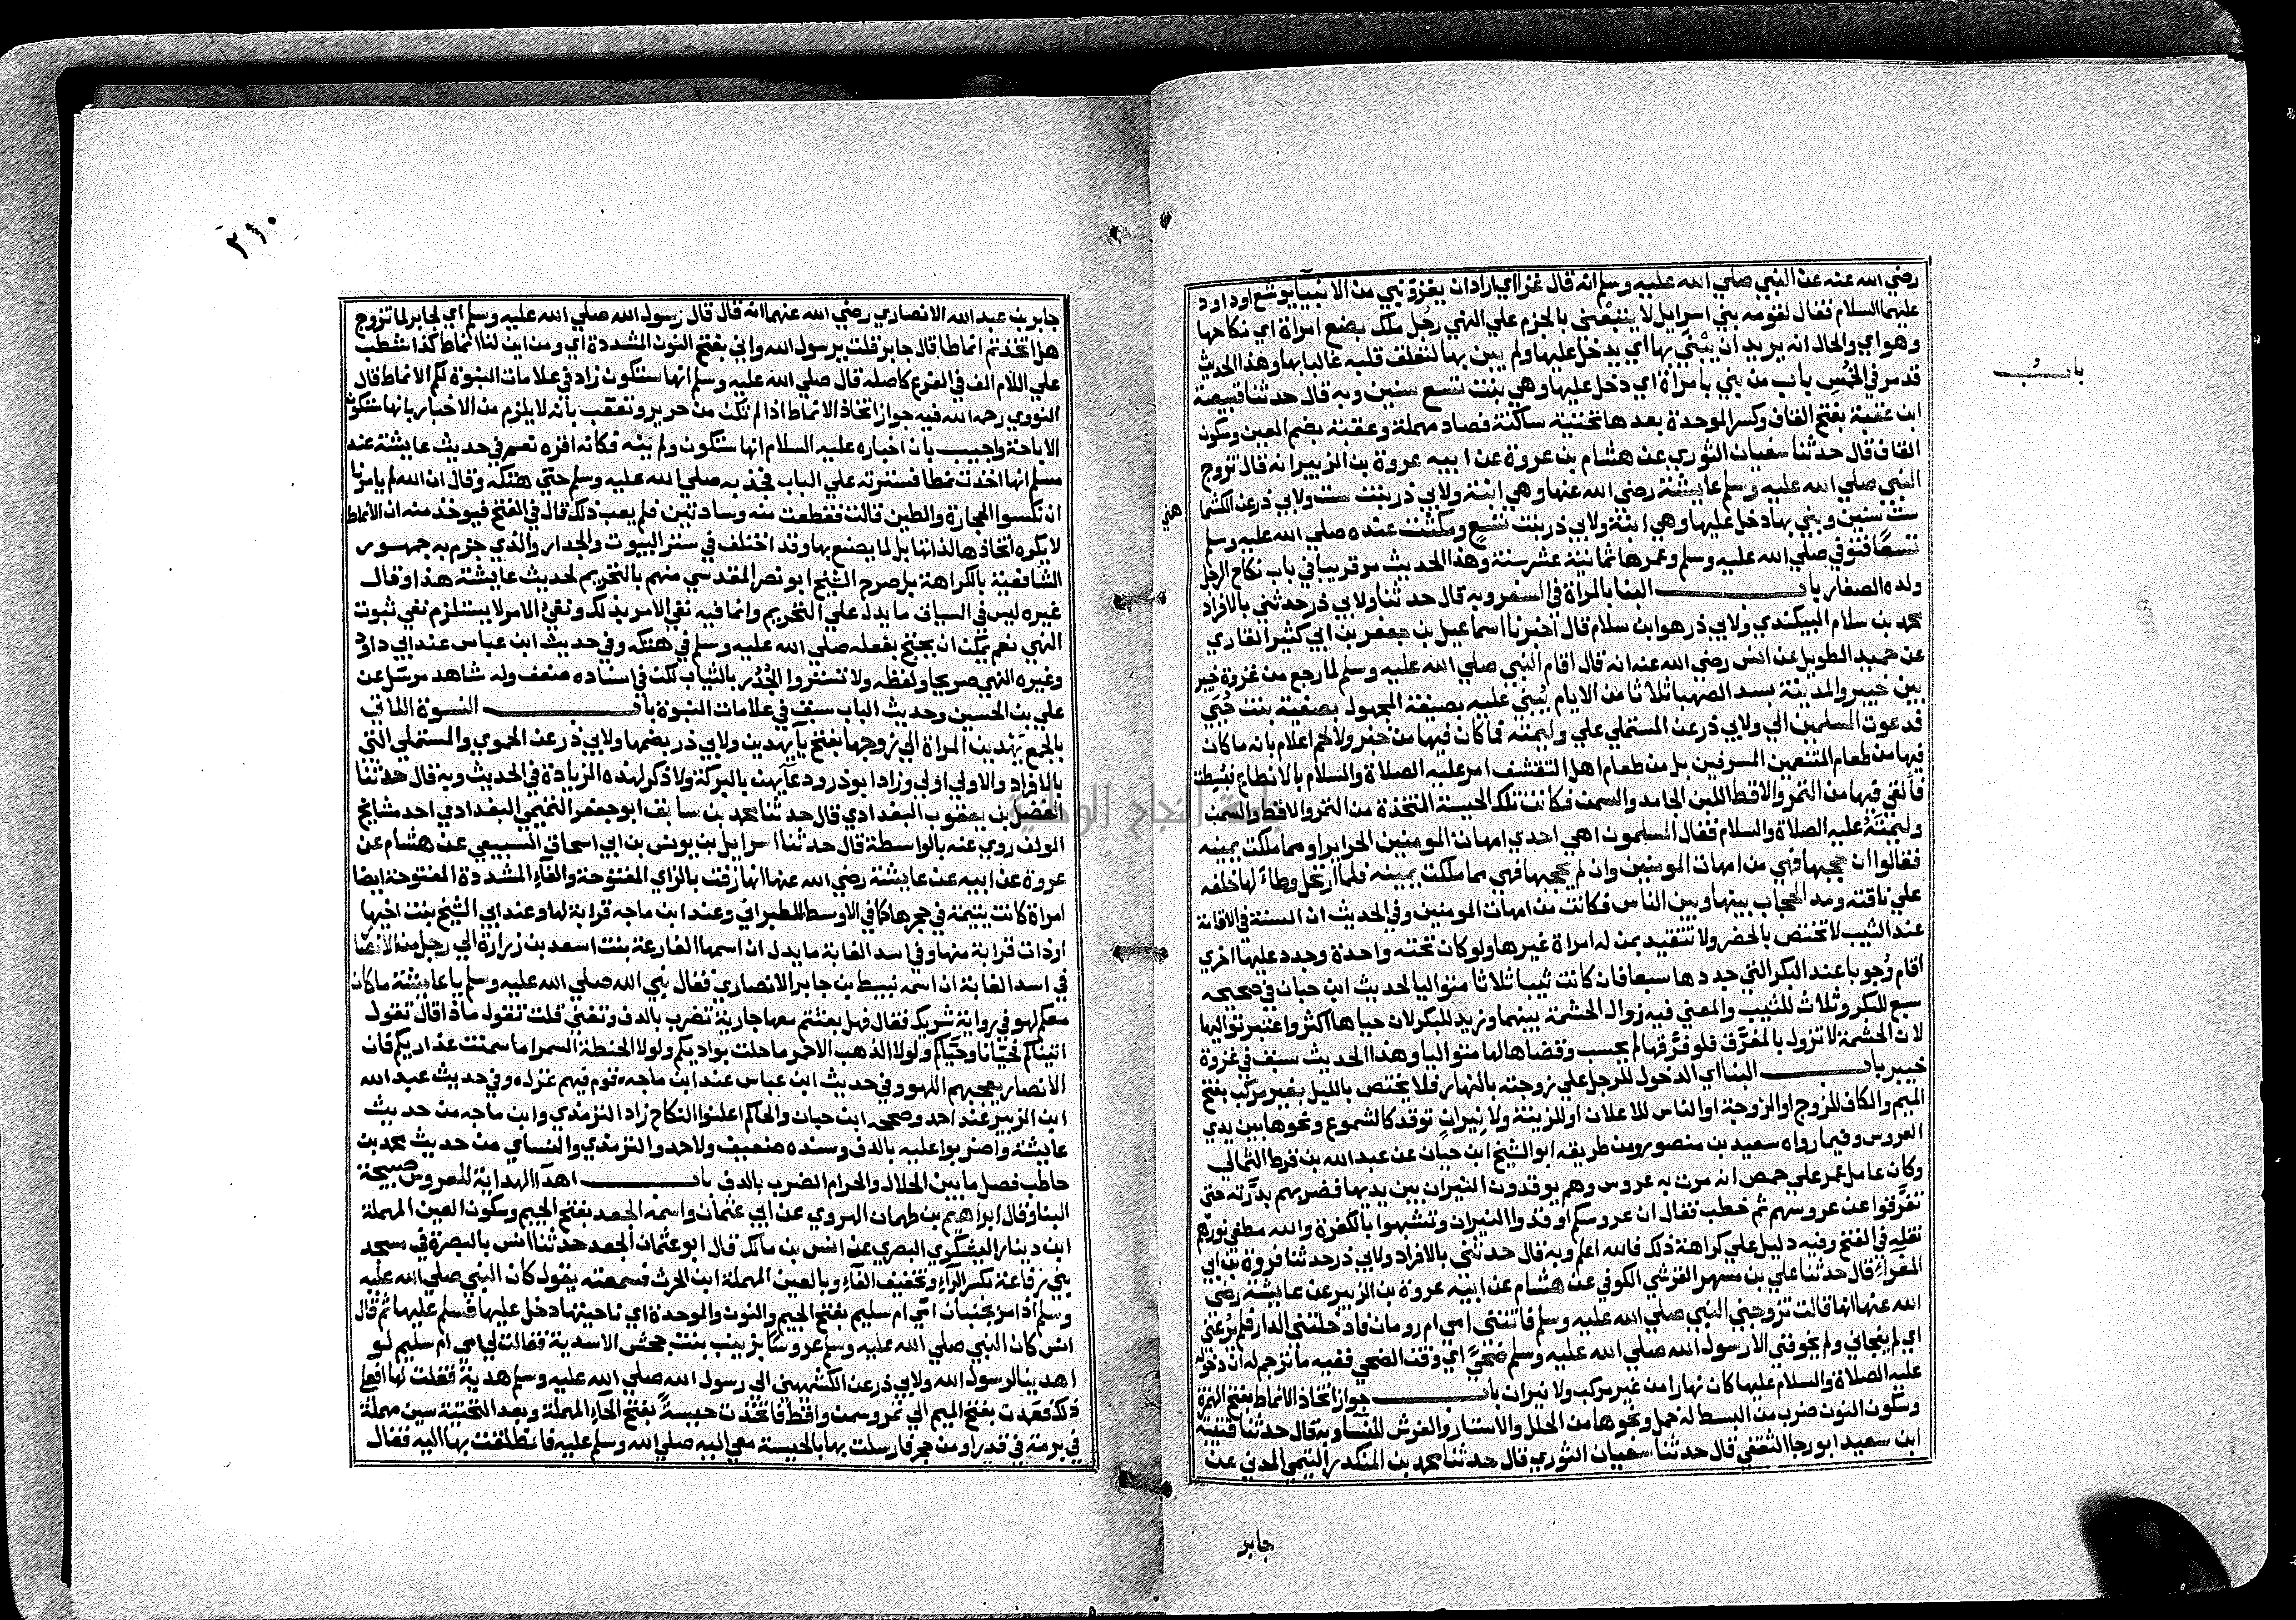 رضي الله عنه عن النبي صلي الله عليه وسلم انه قال غزا اي اراد ان يغزو نبي من الانبيا يوشع او داود
عليهما السلام فقال لقومه بني اسرايل لا يتبعني بالجزم علي النهي رجل ملك بضع امراة اي نكاحها
وهو اي والحال انه يريد ان يبني بها اي يدخل عليها ولم يبن بها لتعلق قلبه غالبا بها وهذا الحديث
قد مر في الخمس باب من بني بامراة اي دخل عليها وهي بنت تسع سنين وبه قال حدثنا قبيصة
ابن عقبة بفتح القاف وكسر الموحدة بعدها تحتية ساكنة فصاد مهملة وعقبة بضم العين وسكون
القاف قال حدثنا سفيان الثوري عن هشام بن عروة عن ابيه عروة بن الزبير انه قال تزوج
النبي صلي الله عليه وسلم عايشة رضي الله عنها وهي ابنة ولابي ذر بنت ست ولابي ذر عن الكشما
هني
ست سنين وبني بها دخل عليها وهي ابنة ولابي ذر بنت تسع ومكثت عنده صلي الله عليه وسلم
تسعا فتوفي صلي الله عليه وسلم وعمرها ثمانية عشر سنة وهذا الحديث مر قريبا في باب نكاح الرجل
ولده الصغار باب البنا بالمراة في السفر وبه قال حدثنا ولابي ذر حدثني بالافراد
محمد بن سلام البيكندي ولابي ذر هو ابن سلام قال اخبرنا اسماعيل بن جعفر بن ابي كثير القاري
عن حميد الطويل عن انس رضي الله عنه انه قال اقام النبي صلي الله عليه وسلم لما رجع من غزوة خيبر
بين خيبر والمدينة بسد الصهبا ثلاثا من الايام يبني عليه بصيغة المجهول بصفية بنت حيي
فدعوت المسلمين الي ولابي ذر عن المستملي علي وليمته فما كان فيها من خبز ولا لحم اعلام بانه ما كان
فيها من طعام المتنعمين المسرفين بل من طعام اهل التقشف امر عليه الصلاة والسلام بالانطاع فبسطت
فالقي فيها من التمر والاقط اللبن الجامد والسمن فكانت تلك الحيسة المتخذة من التمر والاقط والسمن
وليمته عليه الصلاة والسلام فقال المسلمون اهي احدي امهات المومنين الحراير او مما ملكت يمينه
فقالوا ان حجبها فهي من امهات المومنين وان لم يحجبها فهي مما ملكت يمينه فلما ارتحل وطا لها خلفه
علي ناقته ومد الحجاب بينها وبين الناس فكانت من امهات المومنين وفي الحديث ان السنة في الاقامة
عند الثيب لا تختص بالحضر ولا تتقيد بمن له امراة غيرها ولو كان تحته واحدة وجدد عليها اخري
اقام وجوبا عند البكر التي جددها سبعا فان كانت ثيبا ثلاثا متواليا لحديث ابن حبان في صحيحه
سبع للبكر وثلاث للثيب والمعني فيه زوال الحشمة بينهما وزيد للبكر لان حياها اكثر واعتبر تواليها
لان الحشمة لا تزول بالمفرق فلو فرقها لم يحسب وقضاها لها متواليا وهذا الحديث سبق في غزوة
خيبر باب البنا اي الدخول للرجل علي زوجته بالنهار فلا يختص بالليل بغير مركب بفتح
الميم والكاف للزوج او الزوجة او الناس للاعلان او للزينة ولا نيران توقد كالشموع ونحوها بين يدي
العروس وفيما رواه سعيد بن منصور ومن طريقه ابو الشيخ ابن حيان عن عبد الله بن قرط الثمالي
وكان عامل عمر علي حمص انه مرت به عروس وهم يوقدون النيران بين يديها فضربهم بدرته حتي
تفرقوا عن عروسهم ثم خطب فقال ان عروسكم اوقدوا النيران وتشبهوا بالكفرة والله مطفي نورهم
نقله في الفتح وفيه دليل علي كراهة ذلك فالله اعلم وبه قال حدثني بالافراد ولابي ذر حدثنا فروة بن ابي
المغراء قال حدثنا علي بن مسهر القرشي الكوفي عن هشام عن ابيه عروة بن الزبير عن عايشة رضي
الله عنها انها قالت تزوجني النبي صلي الله عليه وسلم فاتتني امي ام رومان فادخلتني الدار فلم يرعني
اي لم يفجاني ولم يخوفني الا رسول الله صلي الله عليه وسلم ضحي اي وقت الضحي ففيه ما ترجم له ان دخوله
عليه الصلاة والسلام عليها كان نهارا من غير مركب ولا نيران باب جواز اتخاذ الانماط بفتح الهمزة
وسكون النون ضرب من البسط له خمل ونحوها من الحلل والاستار والفرش للنسا وبه قال حدثنا قتيبة
ابن سعيد ابو رجا الثقفي قال حدثنا سفيان الثوري قال حدثنا محمد بن المنكدر التيمي المدني عن
جابر
باب
٢٩٠
جابر بن عبد الله الانصاري رضي الله عنهما انه قال قال رسول الله صلي الله عليه وسلم اي لجابر لما تزوج
هل اتخذتم انماطا قال جابر قلت يرسول الله واني بفتح النون المشددة اي ومن اين لنا انماط كذا شطب
علي اللام الف في الفرع كاصله قال صلي الله عليه وسلم انها ستكون زاد في علامات النبوة لكم الانماط قال
النووي رحمه الله فيه جواز اتخاذ الانماط اذا لم تكن من حرير وتعقب بانه لا يلزم من الاخبار بانها ستكون
الاباحة واجيب بان اخباره عليه السلام انها ستكون ولم ينه فكانه اقره نعم في حديث عايشة عند
مسلم انها اخذت نمطا فسترته علي الباب فجذبه صلي الله عليه وسلم حتي هتكه وقال ان الله لم يامرنا
ان نكسوا الحجارة والطين قالت فقطعت منه وسادتين فلم يعب ذلك قال في الفتح فيوخذ منه ان الانماط
لا يكره اتخاذها لذاتها بل لما يصنع بها وقد اختلف في ستر البيوت والجدار والذي جزم به جمهور
الشافعية بالكراهة بل صرح الشيخ ابو نصر المقدسي منهم بالتحريم لحديث عايشة هذا وقال
غيره ليس في السياق ما يدل علي التحريم وانما فيه نفي الامر بذلك ونفي الامر لا يستلزم نفي ثبوت
النهي نعم يمكن ان يحتج بفعله صلي الله عليه وسلم في هتكه وفي حديث ابن عباس عند ابي داود
وغيره النهي صريحا ولفظه ولا تستروا الجدر بالثياب لكن في اسناده ضعف وله شاهد مرسل عن
علي بن الحسين وحديث الباب سبق في علامات النبوة باب النسوة اللاتي
بالجمع يهدين المراة الي زوجها بفتح يا يهدين ولابي ذر بضمها ولابي ذر عن الحموي والمستملي التي
بالافراد والاولي اولي وزاد ابو ذر ودعايهن بالبركة ولا ذكر لهذه الزيادة في الحديث وبه قال حدثنا
الفضل بن يعقوب البغدادي قال حدثنا محمد بن سابق ابو جعفر التميمي البغدادي احد مشايخ
المولف روي عنه بالواسطة قال حدثنا اسرايل بن يونس بن ابي اسحاق السبيعي عن هشام عن
عروة عن ابيه عن عايشة رضي الله عنها انها زفت بالزاي المفتوحة والفاء المشددة المفتوحة ايضا
امراة كانت يتيمة في حجرها كما في الاوسط للطبراني وعند ابن ماجه قرابة لها وعند ابي الشيخ بنت اخيها
او ذات قرابة منها وفي اسد الغابة ما يدل ان اسمها الفارعة بنت اسعد بن زرارة الي رجل من الانصار
في اسد الغابة ان اسمه نبيط بن جابر الانصاري فقال نبي الله صلي الله عليه وسلم يا عايشة ما كان
معكم لهو في رواية شريك فقال فهل بعثتم معها جارية تضرب بالدف وتغني قلت تقول ماذا قال تقول
اتيناكم اتيناكم فحيانا وحياكم ولولا الذهب الاحمر ما حلت بواديكم ولولا الحنطة السمرا ما سمنت عذاريكم فان
الانصار يعجبهم اللهو وفي حديث ابن عباس عند ابن ماجه قوم فيهم غزل وفي حديث عبد الله
ابن الزبير عند احمد وصححه ابن حبان والحاكم اعلنوا النكاح زاد الترمذي وابن ماجه من حديث
عايشة واضربوا عليه بالدف وسنده ضعيف ولاحمد والترمذي والنساي من حديث محمد بن
حاطب فصل ما بين الحلال والحرام الضرب بالدف باب اهداء الهداية للعروس صبيحة
البنا وقال ابراهيم بن طهمان الهروي عن ابي عثمان واسمه الجعد بفتح الجيم وسكون العين المهملة
ابن دينار اليشكري البصري عن انس بن مالك قال ابو عثمان الجعد حدثنا انس بالبصرة في مسجد
بني رفاعة بكسر الراء وتخفيف الفاء وبالعين المهملة ابن الحرث فسمعته يقول كان النبي صلي الله عليه
وسلم اذا مر بجنبات امي ام سليم بفتح الجيم والنون والموحدة اي ناحيتها دخل عليها فسلم عليها ثم قال
انس كان النبي صلي الله عليه وسلم عروسا بزينب بنت جحش الاسدية فقالت لي امي ام سليم لو
اهدينا لرسول الله ولابي ذر عن الكشميهني الي رسول الله صلي الله عليه وسلم هدية فقلت لها افعلي
ذلك فعمدت بفتح الميم الي تمر وسمن واقط فاتخذت حيسة بفتح الحاء المهملة وبعد التحتية سين مهملة
في برمة في قدر او من حجر فارسلت بها بالحيسة معي اليه صلي الله وسلم عليه فانطلقت بها اليه فقال